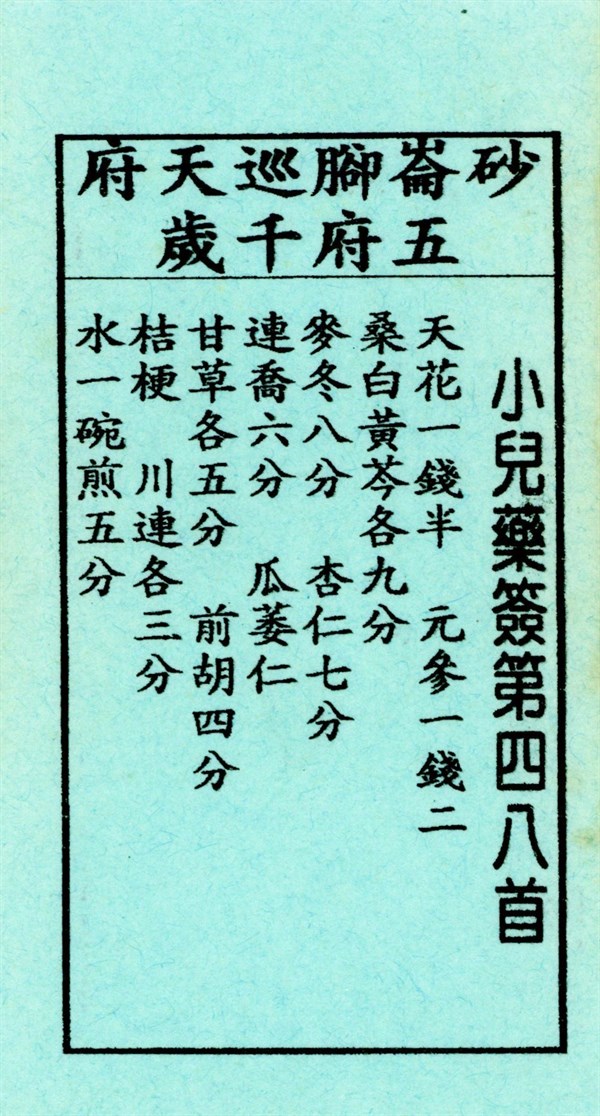 砂崙腳巡天府
五府千歲
小兒藥簽第四八首
天花一錢半　元參一錢二
桑白黃芩各九分
麥冬八分　杏仁七分
連喬六分　瓜蔞仁
甘草各五分　前胡四分
桔梗　川連各三分
水一碗煎五分